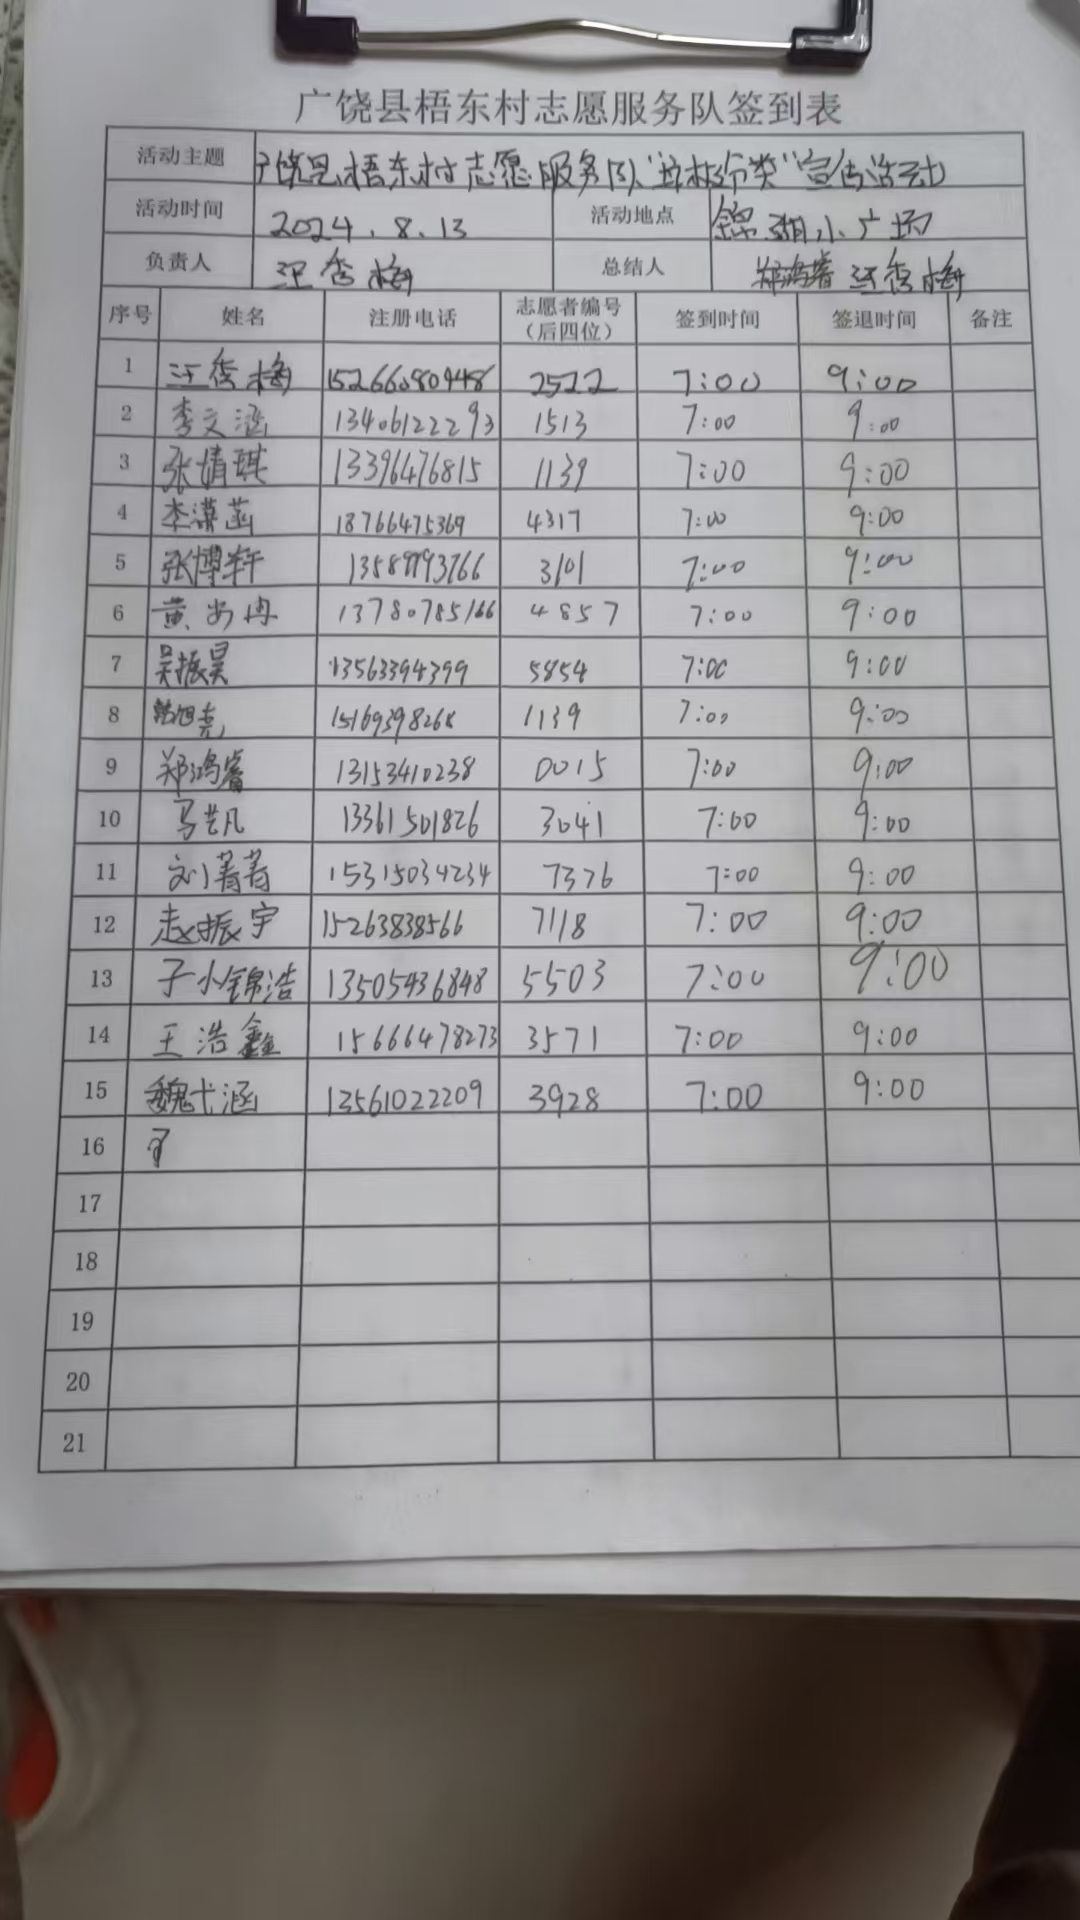 广饶县梧东村志愿服务队签到表
活动主题 广饶县梧东村志愿服务队"垃圾分类"宣传活动
活动时间 2024.8.13 活动地点 锦湖小广场
负责人 汪秀梅 总结人 郑鸿睿 汪秀梅
序号 姓名 注册电话 志愿者编号（后四位） 签到时间 签退时间 备注
1 汪秀梅 15266080448 2522 7:00 9:00
2 李文涵 13406122293 1513 7:00 9:00
3 张婧琪 13396476815 1139 7:00 9:00
4 李潇菡 18766475369 4317 7:00 9:00
5 张博轩 13589993766 3101 7:00 9:00
6 黄 冉 13780785166 4857 7:00 9:00
7 吴振昊 13563394399 5854 7:00 9:00
8 韩旭亮 15169398268 1139 7:00 9:00
9 郑鸿睿 13153410238 0015 7:00 9:00
10 马艺凡 13361501826 3041 7:00 9:00
11 刘菁菁 15315034234 7376 7:00 9:00
12 赵振宇 15263838566 7118 7:00 9:00
13 孙锦浩 13505436848 5503 7:00 9:00
14 王浩鑫 15666478273 3571 7:00 9:00
15 魏弋涵 13561022209 3928 7:00 9:00
16
17
18
19
20
21